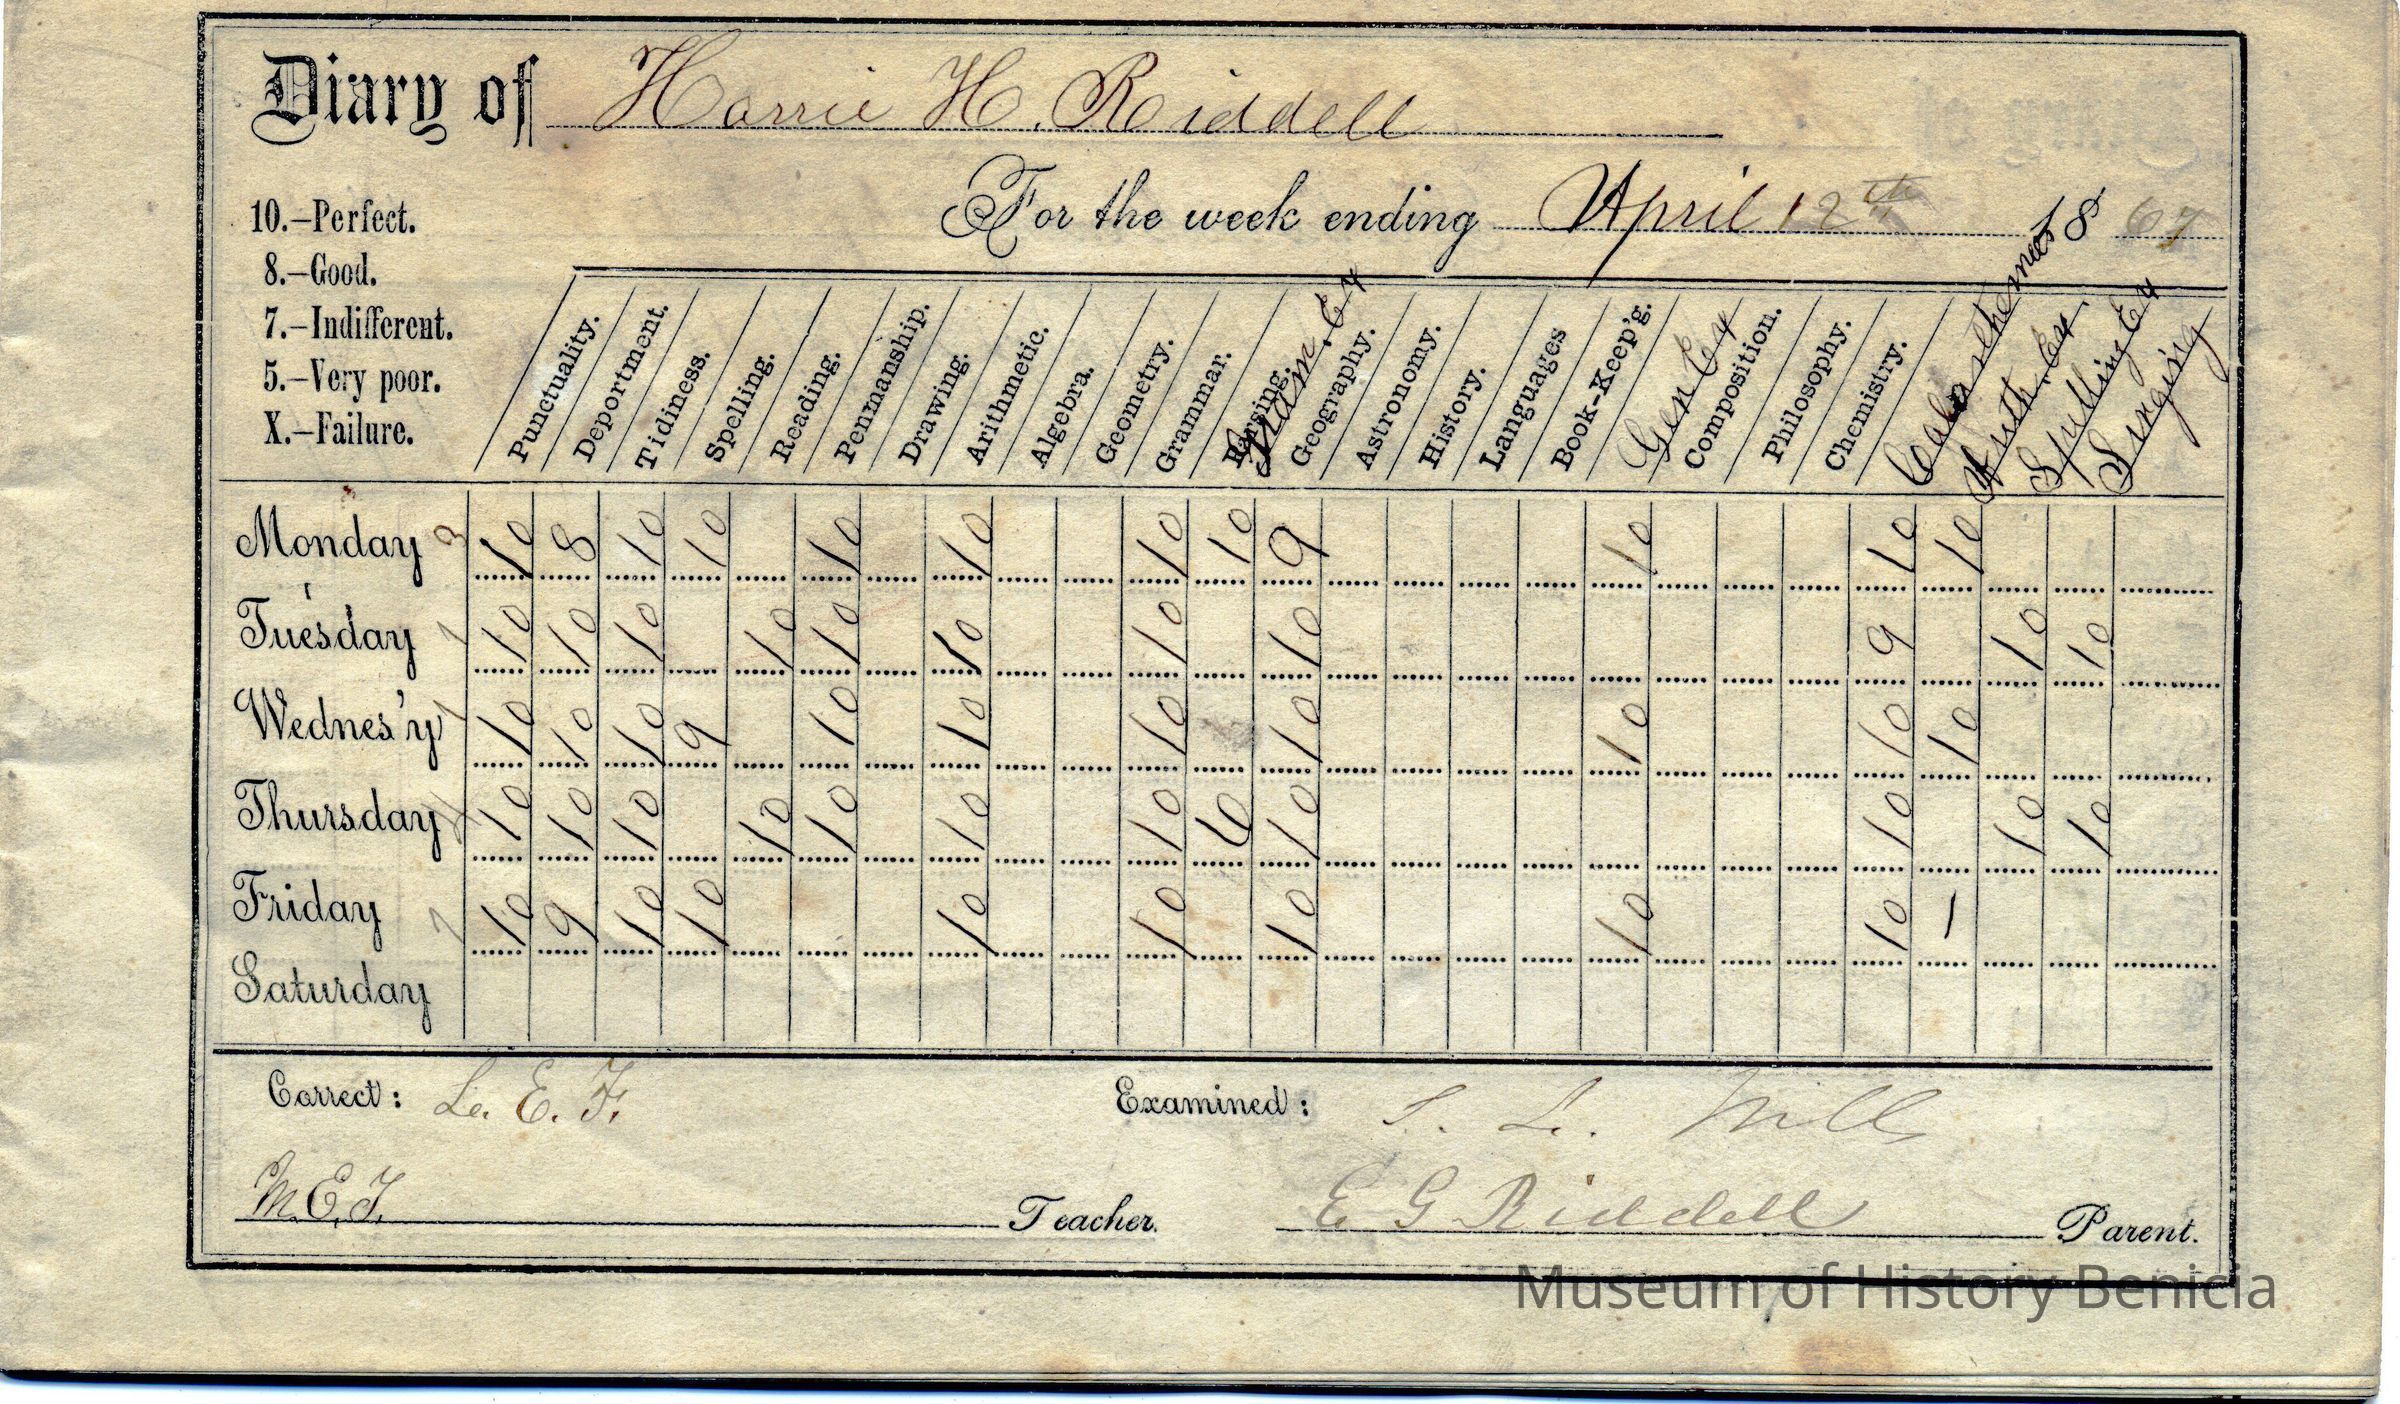 Diary of Harrie H. Riddell
For the week ending April 12th 1867
10.–Perfect.
8.–Good.
7.–Indifferent.
5.–Very poor.
X.–Failure.
Punctuality. Deportment. Tidiness. Spelling. Reading. Penmanship. Drawing. Arithmetic. Algebra. Geometry. Grammar. Parsing. Gram. Ex Geography. Astronomy. History. Languages Book-Keep'g. Gen Ex Composition. Philosophy. Chemistry. Calasthenics Arith. Ex Spelling Ex Singing
Monday 3 10 8 10 10 10 10 10 10 9 10 10 10
Tuesday 1 10 10 10 10 10 10 10 10 9 10 10
Wednes'y 1 10 10 10 9 10 10 10 10 10 10 10
Thursday 10 10 10 10 10 10 10 6 10 10 10 10
Friday 10 9 10 10 10 10 10 10 10 1
Saturday
Correct: L. E. F. Examined: S. L. Mills
M. E. F. Teacher. E G Riddell Parent.
Museum of History Benicia